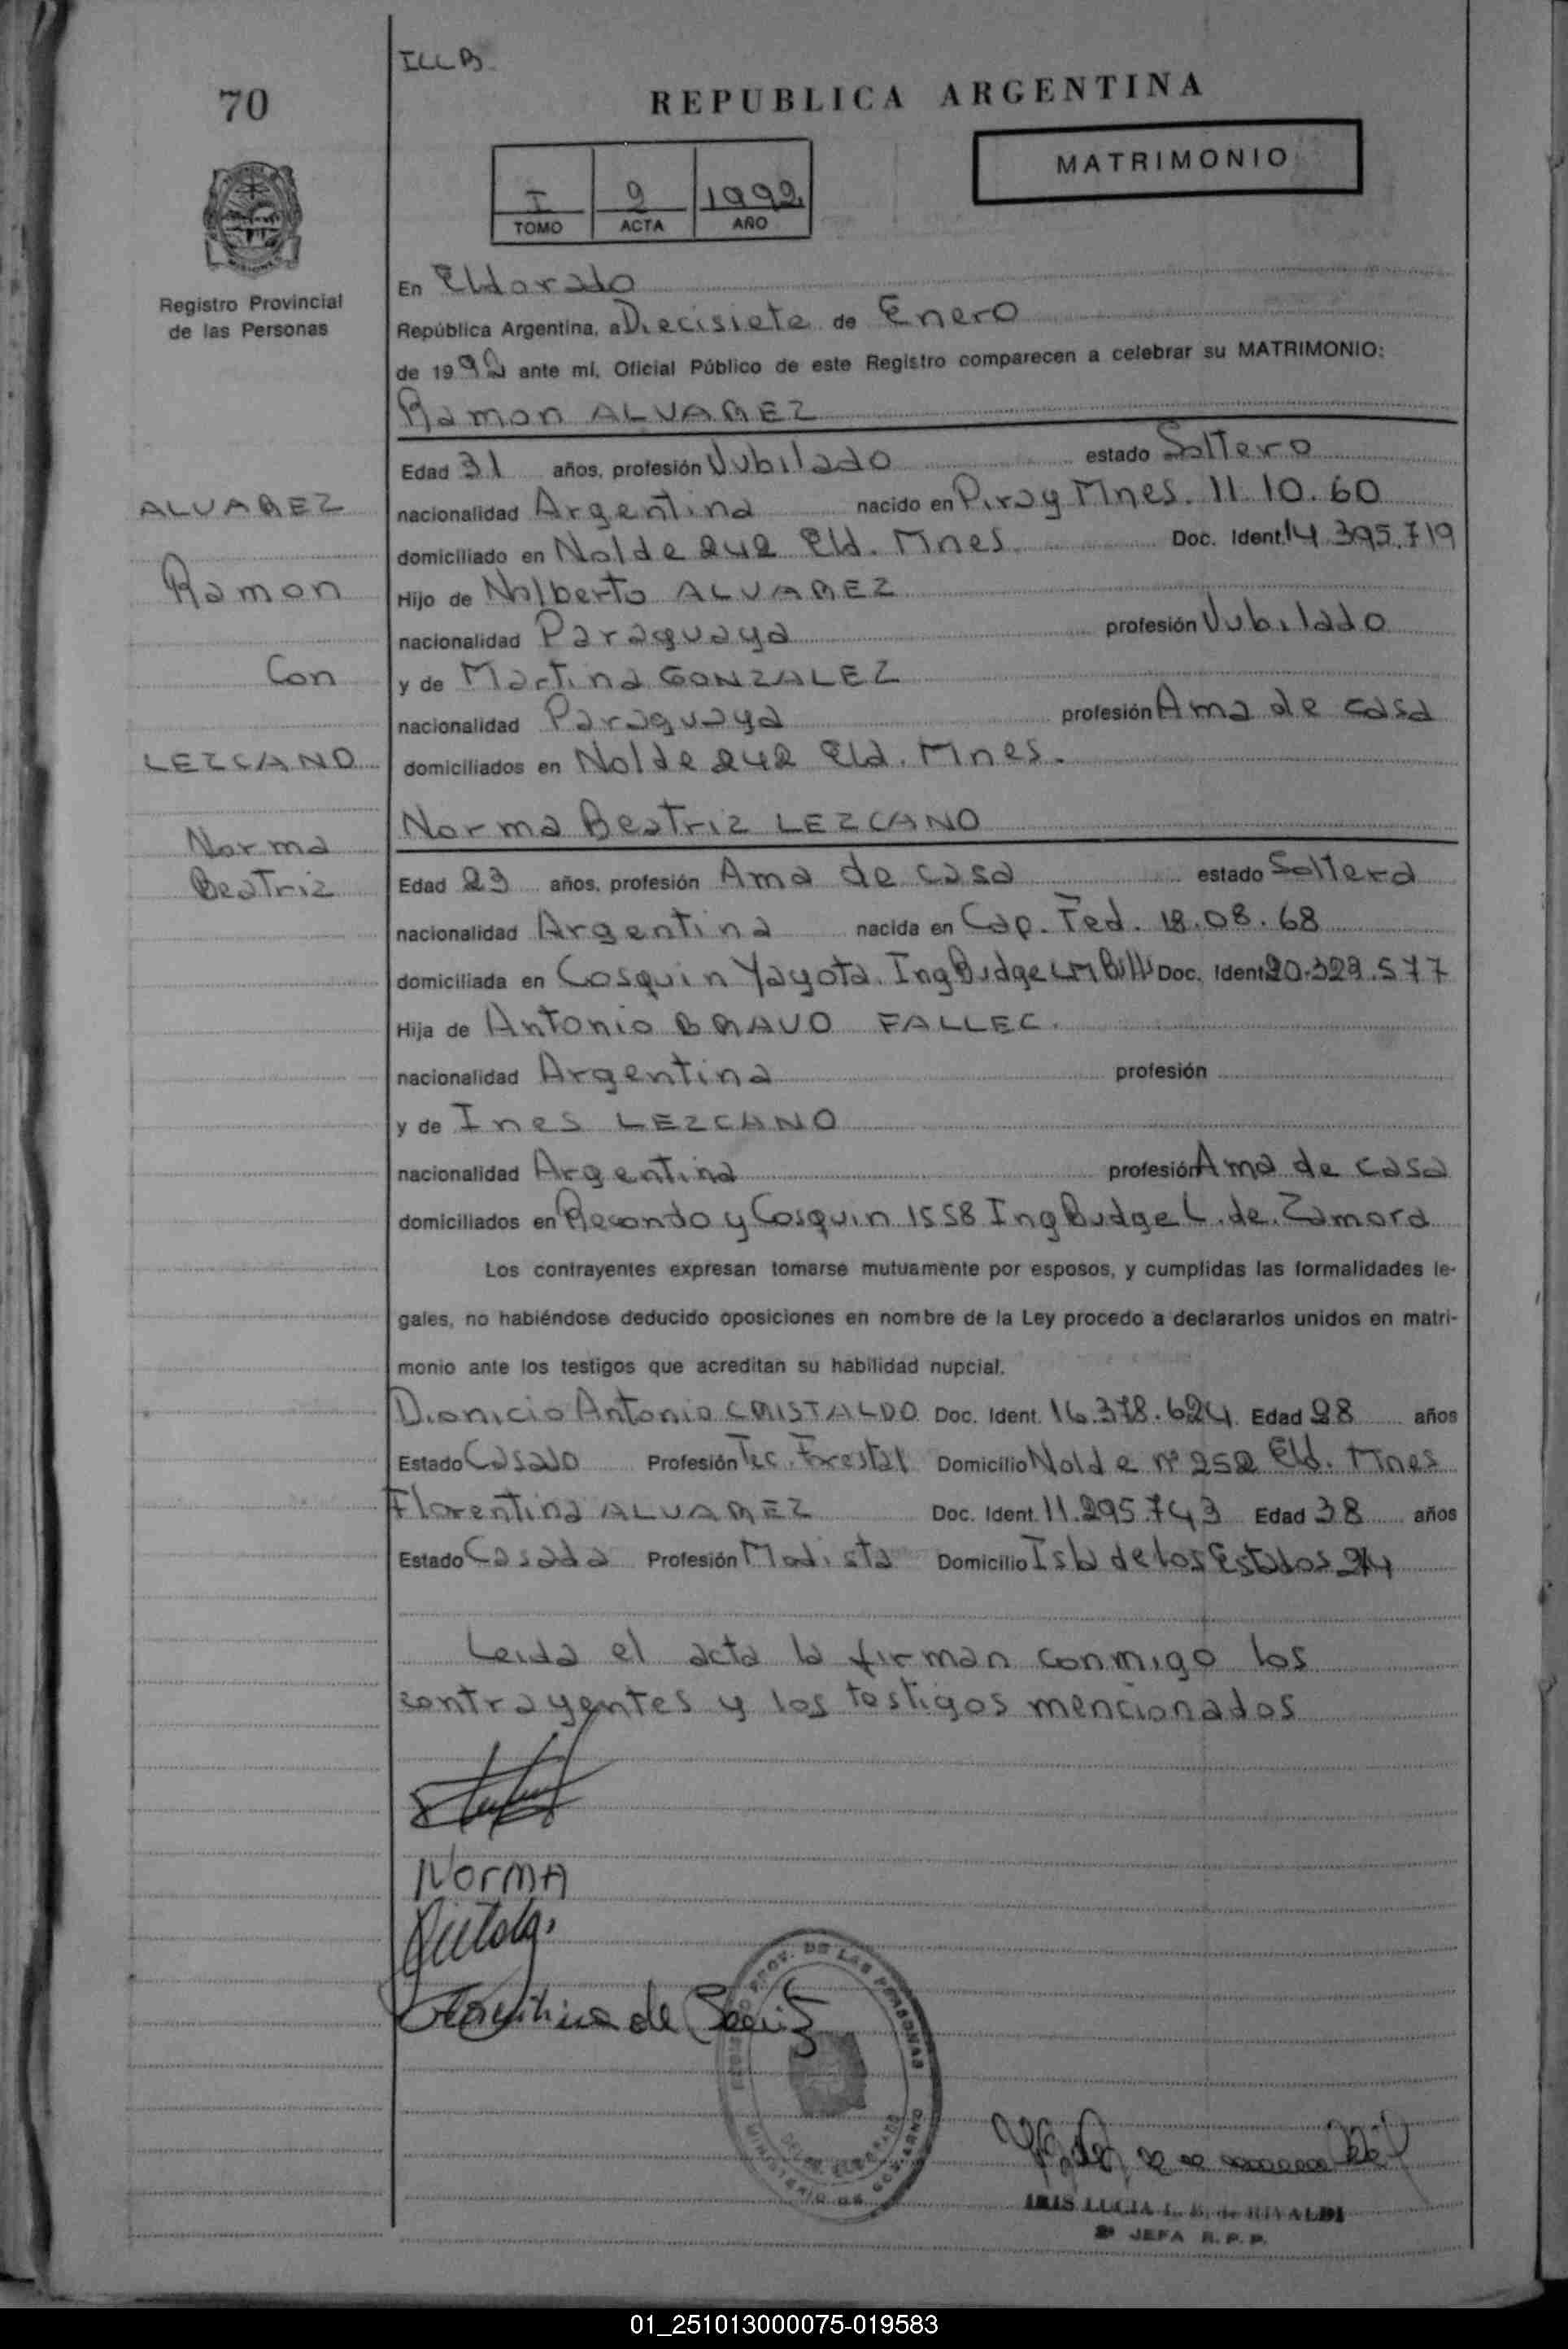 ILLB
70
REPUBLICA ARGENTINA
MATRIMONIO
I 9 1992
TOMO ACTA AÑO
Registro Provincial
de las Personas
En Eldorado
República Argentina, a Diecisiete de Enero
de 1992 ante mí, Oficial Público de este Registro comparecen a celebrar su MATRIMONIO:
Ramon ALVAREZ
Edad 31 años, profesión Jubilado estado Soltero
nacionalidad Argentina nacido en Piray Mnes. 11.10.60
domiciliado en Nolde 242 Eld. Mnes. Doc. Ident. 14.395.719
Hijo de Nolberto ALVAREZ
nacionalidad Paraguaya profesión Jubilado
y de Martina GONZALEZ
nacionalidad Paraguaya profesión Ama de casa
domiciliados en Nolde 242 Eld. Mnes.
ALVAREZ
Ramon
Con
LEZCANO
Norma
Beatriz
Norma Beatriz LEZCANO
Edad 23 años, profesión Ama de casa estado Soltera
nacionalidad Argentina nacida en Cap. Fed. 18.08.68
domiciliada en Cosquin Yayota. Ing Budge Doc. Ident. 20.329.577
Hija de Antonio BRAVO FALLEC.
nacionalidad Argentina profesión
y de Ines LEZCANO
nacionalidad Argentina profesión Ama de casa
domiciliados en Recondo y Cosquin 1558 Ing Budge L. de. Zamora
Los contrayentes expresan tomarse mutuamente por esposos, y cumplidas las formalidades le-
gales, no habiéndose deducido oposiciones en nombre de la Ley procedo a declararlos unidos en matri-
monio ante los testigos que acreditan su habilidad nupcial.
Dionicio Antonio CRISTALDO Doc. Ident. 16.378.624 Edad 28 años
Estado Casado Profesión Tec. Forestal Domicilio Nolde nº 252 Eld. Mnes
Florentina ALVAREZ Doc. Ident. 11.295.743 Edad 38 años
Estado Casada Profesión Modista Domicilio Isla de los Estados
Leida el acta la firman conmigo los
contrayentes y los testigos mencionados
Norma
PROV. DE LAS PERSONAS
MINISTERIO DE GOBIERNO
IRIS LUCIA L. B. de RIVALDI
2ª JEFA R.P.P.
01_251013000075-019583